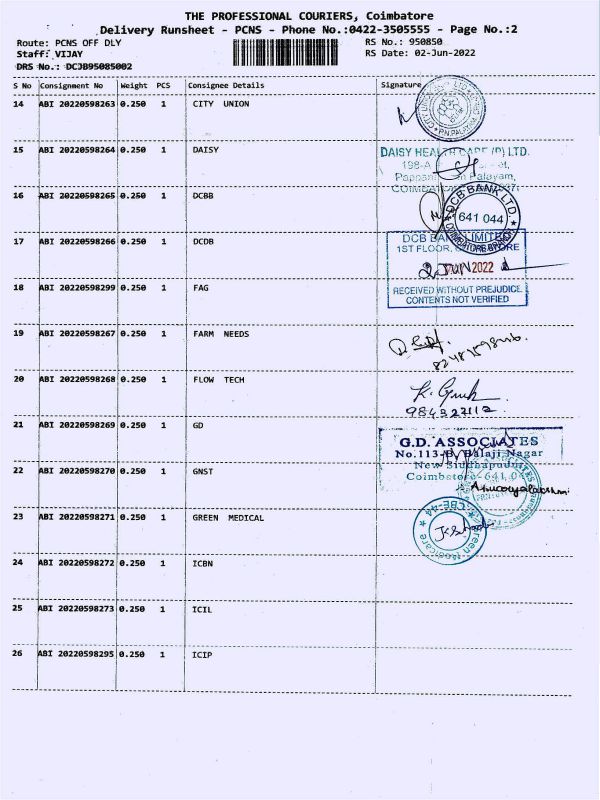 THE PROFESSIONAL COURIERS, Coimbatore
Delivery Runsheet - PCNS - Phone No.:0422-3505555 - Page No.:2
Route: PCNS OFF DLY RS No.: 950850
Staff: VIJAY RS Date: 02-Jun-2022
DRS No.: DCJB95085002
S No Consignment No Weight PCS Consignee Details Signature
14 ABI 20220598263 0.250 1 CITY UNION
15 ABI 20220598264 0.250 1 DAISY
DAISY HEALTH CARE (P) LTD.
198-A
Palayam,
16 ABI 20220598265 0.250 1 DCBB
DCB BANK LTD.
641 044
17 ABI 20220598266 0.250 1 DCDB
DCB BANK LIMITED
1ST FLOOR,
2 JUN 2022
18 ABI 20220598299 0.250 1 FAG
RECEIVED WITHOUT PREJUDICE
CONTENTS NOT VERIFIED
19 ABI 20220598267 0.250 1 FARM NEEDS
20 ABI 20220598268 0.250 1 FLOW TECH
21 ABI 20220598269 0.250 1 GD
G.D. ASSOCIATES
No.113-B, Balaji Nagar
New Siddhapudur
22 ABI 20220598270 0.250 1 GNST
Coimbatore-641 04
23 ABI 20220598271 0.250 1 GREEN MEDICAL
CBE-44
Green Medicare
24 ABI 20220598272 0.250 1 ICBN
25 ABI 20220598273 0.250 1 ICIL
26 ABI 20220598295 0.250 1 ICIP